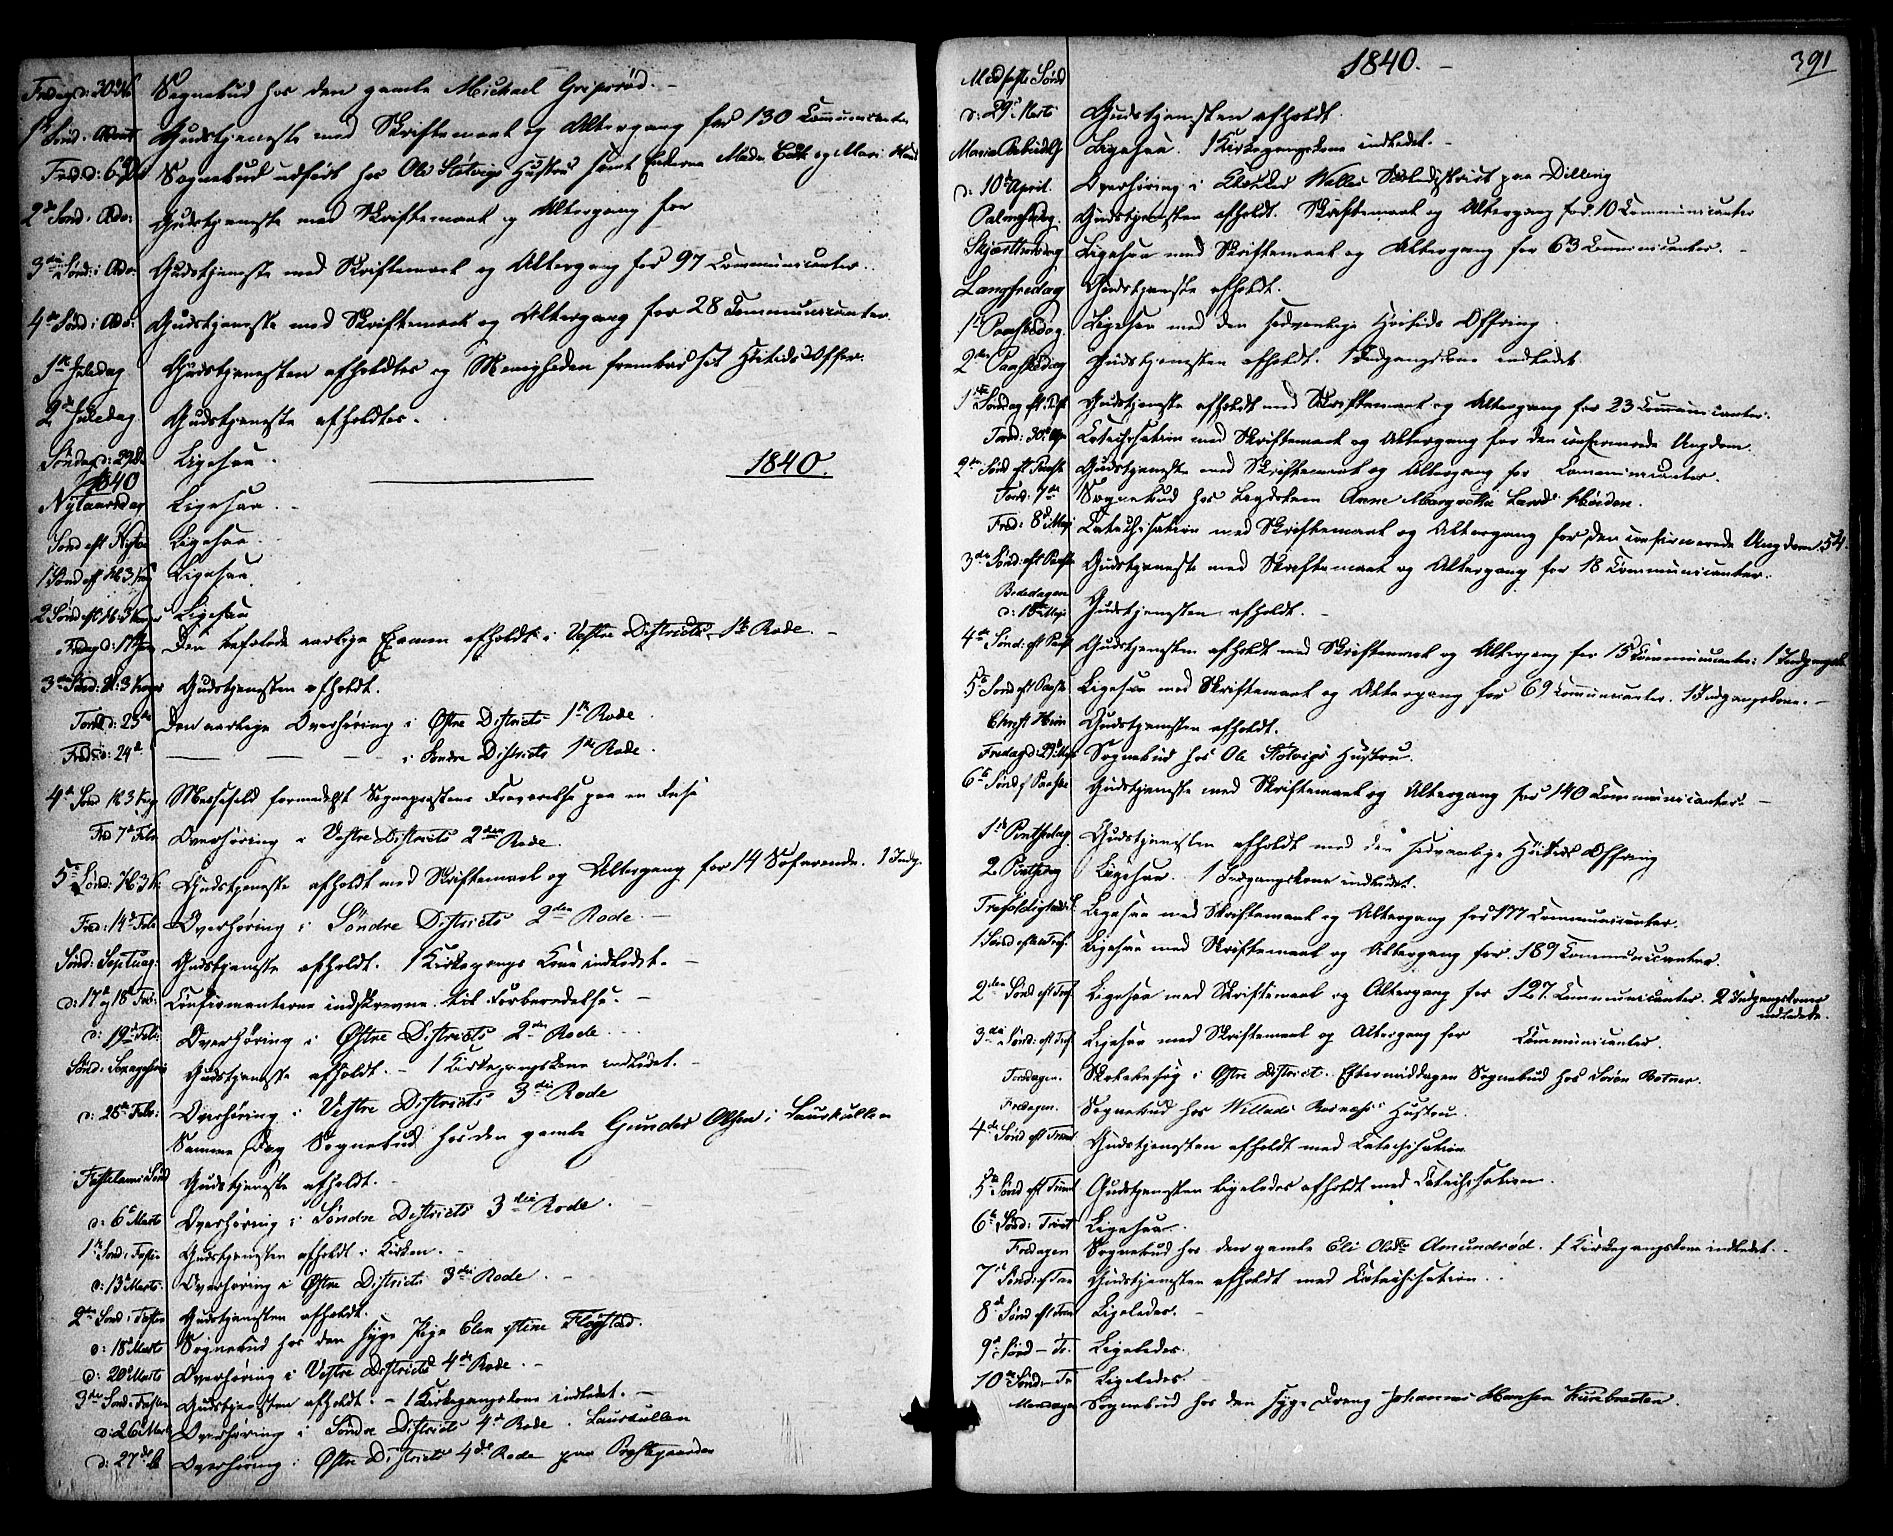 Fredag d: 30te Sognebud hos den gamle Michael Gripsrød. –
1ste Sønd: Advent Gudstjeneste med Skriftemaal og Altergang for 130 Communicanter
Fred. d: 6te Sognebud udført hos Ole Støtvigs Hustru samt Enkerne og Mari
2den Sønd: i Adv: Gudstjeneste med Skriftemaal og Altergang for
3die Sønd: i Adv: Gudstjeneste med Skriftemaal og Altergang for 97 Communicanter.
4de Sønd: i Adv: Gudstjeneste med Skriftemaal og Altergang for 28 Communicanter.
1ste Juledag Gudstjenesten afholdtes og Menigheden frembar sit Høitids Offer.
2den Juledag Gudstjeneste afholdtes. –
Søndag d: 29de Ligesaa.
1840.
1840
Nytaarsdag Ligesaa. –
Sønd eft Nytaar Ligesaa.
1 Sønd eft H 3 Kong Ligesaa.
2 Sønd eft H. 3 Konger Ligesaa
Fredag d: 17 Jan Den befalede aarlige Examen afholdt i Vestre Districts 1ste Rode. –
3die Sønd: H: 3 Konger Gudstjenesten afholdt.
Torsd: d: 23de Den aarlige Overhøring i Østre Districts 1ste Rode.
Fred: d: 24de — — — i Søndre Districts 1ste Rode.
4de Sønd H 3 Kong Messefald formedelst Sognepræstens Fraværelse paa en Reise
Fred 7de Febr Overhøring i Vestre Districts 2den Rode.
5te Sønd: H 3 K: Gudstjeneste afholdt med Skriftemaal og Altergang for 14 Søfarende. 1 Indg.
Fred: 14de Febr Overhøring i Søndre Districts 2den Rode. –
Sønd: Septuag: Gudstjeneste afholdt. 1 Kirkegangs Kone indledet. –
d: 17de og 18de Feb: Confirmanterne indskrevne til Forberedelse. –
d: 19de Feb: Overhøring i Østre Districts 2den Rode. –
Sønd: Sexagesima Gudstjeneste afholdt. – 1 Kirkegangskone indledet. –
d: 28de Febr: Overhøring i Vestre Districts 3die Rode
Samme Dag Sognebud hos den gamle Gunder Olsen i Laurkullen
Fastelavns Sønd Gudstjeneste afholdt. –
d: 6te Marts Overhøring i Søndre Districts 3die Rode. –
1ste Sønd: i Fasten Gudstjenesten afholdt i Kirken. –
d: 13de Marts Overhøring i Østre Districts 3die Rode. –
2den Sønd: i Fasten Gudstjenesten afholdt.
d: 18de Marts Sognebud hos den syge Pige Elen Stine Fløgstad.
d: 20de Marts Overhøring i Vestre Districts 4de Rode. –
3die Sønd: i Fasten Gudstjenesten afholdt. – 1 Kirkegangskone indledet. –
d: 26 Marts Overhøring i Søndre District 4de Rode. Laurkullen
d: 27de Overhøring i Østre Districts 4de Rode paa Præstegaarden
1840. –
391
Midfaste Sønd
d: 29de Marts Gudstjenesten afholdt.
Maria Bebud: Ligesaa. 1 Kirkegangskone indledet. –
d: 10de April. Overhøring i Klokker Walles Skoledistrict paa Dilling
Palmesøndag Gudstjenesten afholdt. Skriftemaal og Altergang for 10 Communicanter
Skjærthorsdag Ligesaa med Skriftemaal og Altergang for 63 Communicanter. –
Langfredag Gudstjeneste afholdt.
1ste Paaskedag Ligesaa med den sædvanlige Høitids Offring.
2den Paaskedag Gudstjenesten afholdt. 1 Indgangskone indledet
1ste Søndag eft Paaske Gudstjeneste afholdt med Skriftemaal og Altergang for 23 Communicanter.
Torsd: 30te Apr Catechisation med Skriftemaal og Altergang for den confirmerede Ungdom
2den Sønd eft Paaske Gudstjeneste med Skriftemaal og Altergang for Communicanter.
Torsd: 7de Sognebud hos Anne Margrethe
Fred: 8de Maj Catechisation med Skriftemaal og Altergang for den confirmerede Ungdom. 54.
3die Sønd: eft Paaske Gudstjeneste med Skriftemaal og Altergang for 18 Communicanter.
Bededagen
d: 15de Maj Gudstjenesten afholdt. –
4de Sønd: eft Paaske Gudstjenesten afholdt med Skriftemaal og Altergang for 15 Communicanter: 1 Indgangsk.
5te Sønd eft Paaske Ligesaa med Skriftemaal og Altergang for 69 Communicanter. 1 Indgangskone. –
Christi Him Gudstjenesten afholdt.
Fredag d: 29de Maj Sognebud hos Ole Støtvigs Hustru.
6te Sønd: Paaske Gudstjeneste med Skriftemaal og Altergang for 140 Communicanter. –
1ste Pintsedag Gudstjenesten afholdt med den sædvanlige Høitids Offring
2 Pintsedag Ligesaa. 1 Indgangskone indledet.
Trefoldigheds Ligesaa med Skriftemaal og Altergang for 177 Communicanter.
1 Sønd efter Tref. Ligesaa med Skriftemaal og Altergang for 189 Communicanter.
2den Sønd eft Tref. Ligesaa med Skriftemaal og Altergang for 127. Communicanter. 2 Indgangskoner
indledede.
3die Sønd: eft Tref Ligesaa med Skriftemaal og Altergang for Communicanter.
Torsdagen. Skolebesøg i Østre District. Eftermiddagen Sognebud hos Søren Botner.
Fredagen. Sognebud hos Willads Hustru.
4de Sønd eft Trinit Gudstjenesten afholdt med Catechisation
5te Sønd eft Trinit Gudstjenesten ligeledes afholdt med Catechisation.
6te Sønd: Trinit Ligesaa.
Fredagen Sognebud hos den gamle Eli Olsdtr Amundrød. 1 Kirkegangskone indledet. –
7de Sønd: ef Trin Gudstjenesten afholdt med Catechisation. –
8de Sønd eft Trin Ligeledes. –
9de Sønd – Tr. Ligeledes.
10de Sønd: – Tr Ligeledes.
Mandagen Sognebud hos den syge Dreng Johannes Hansen